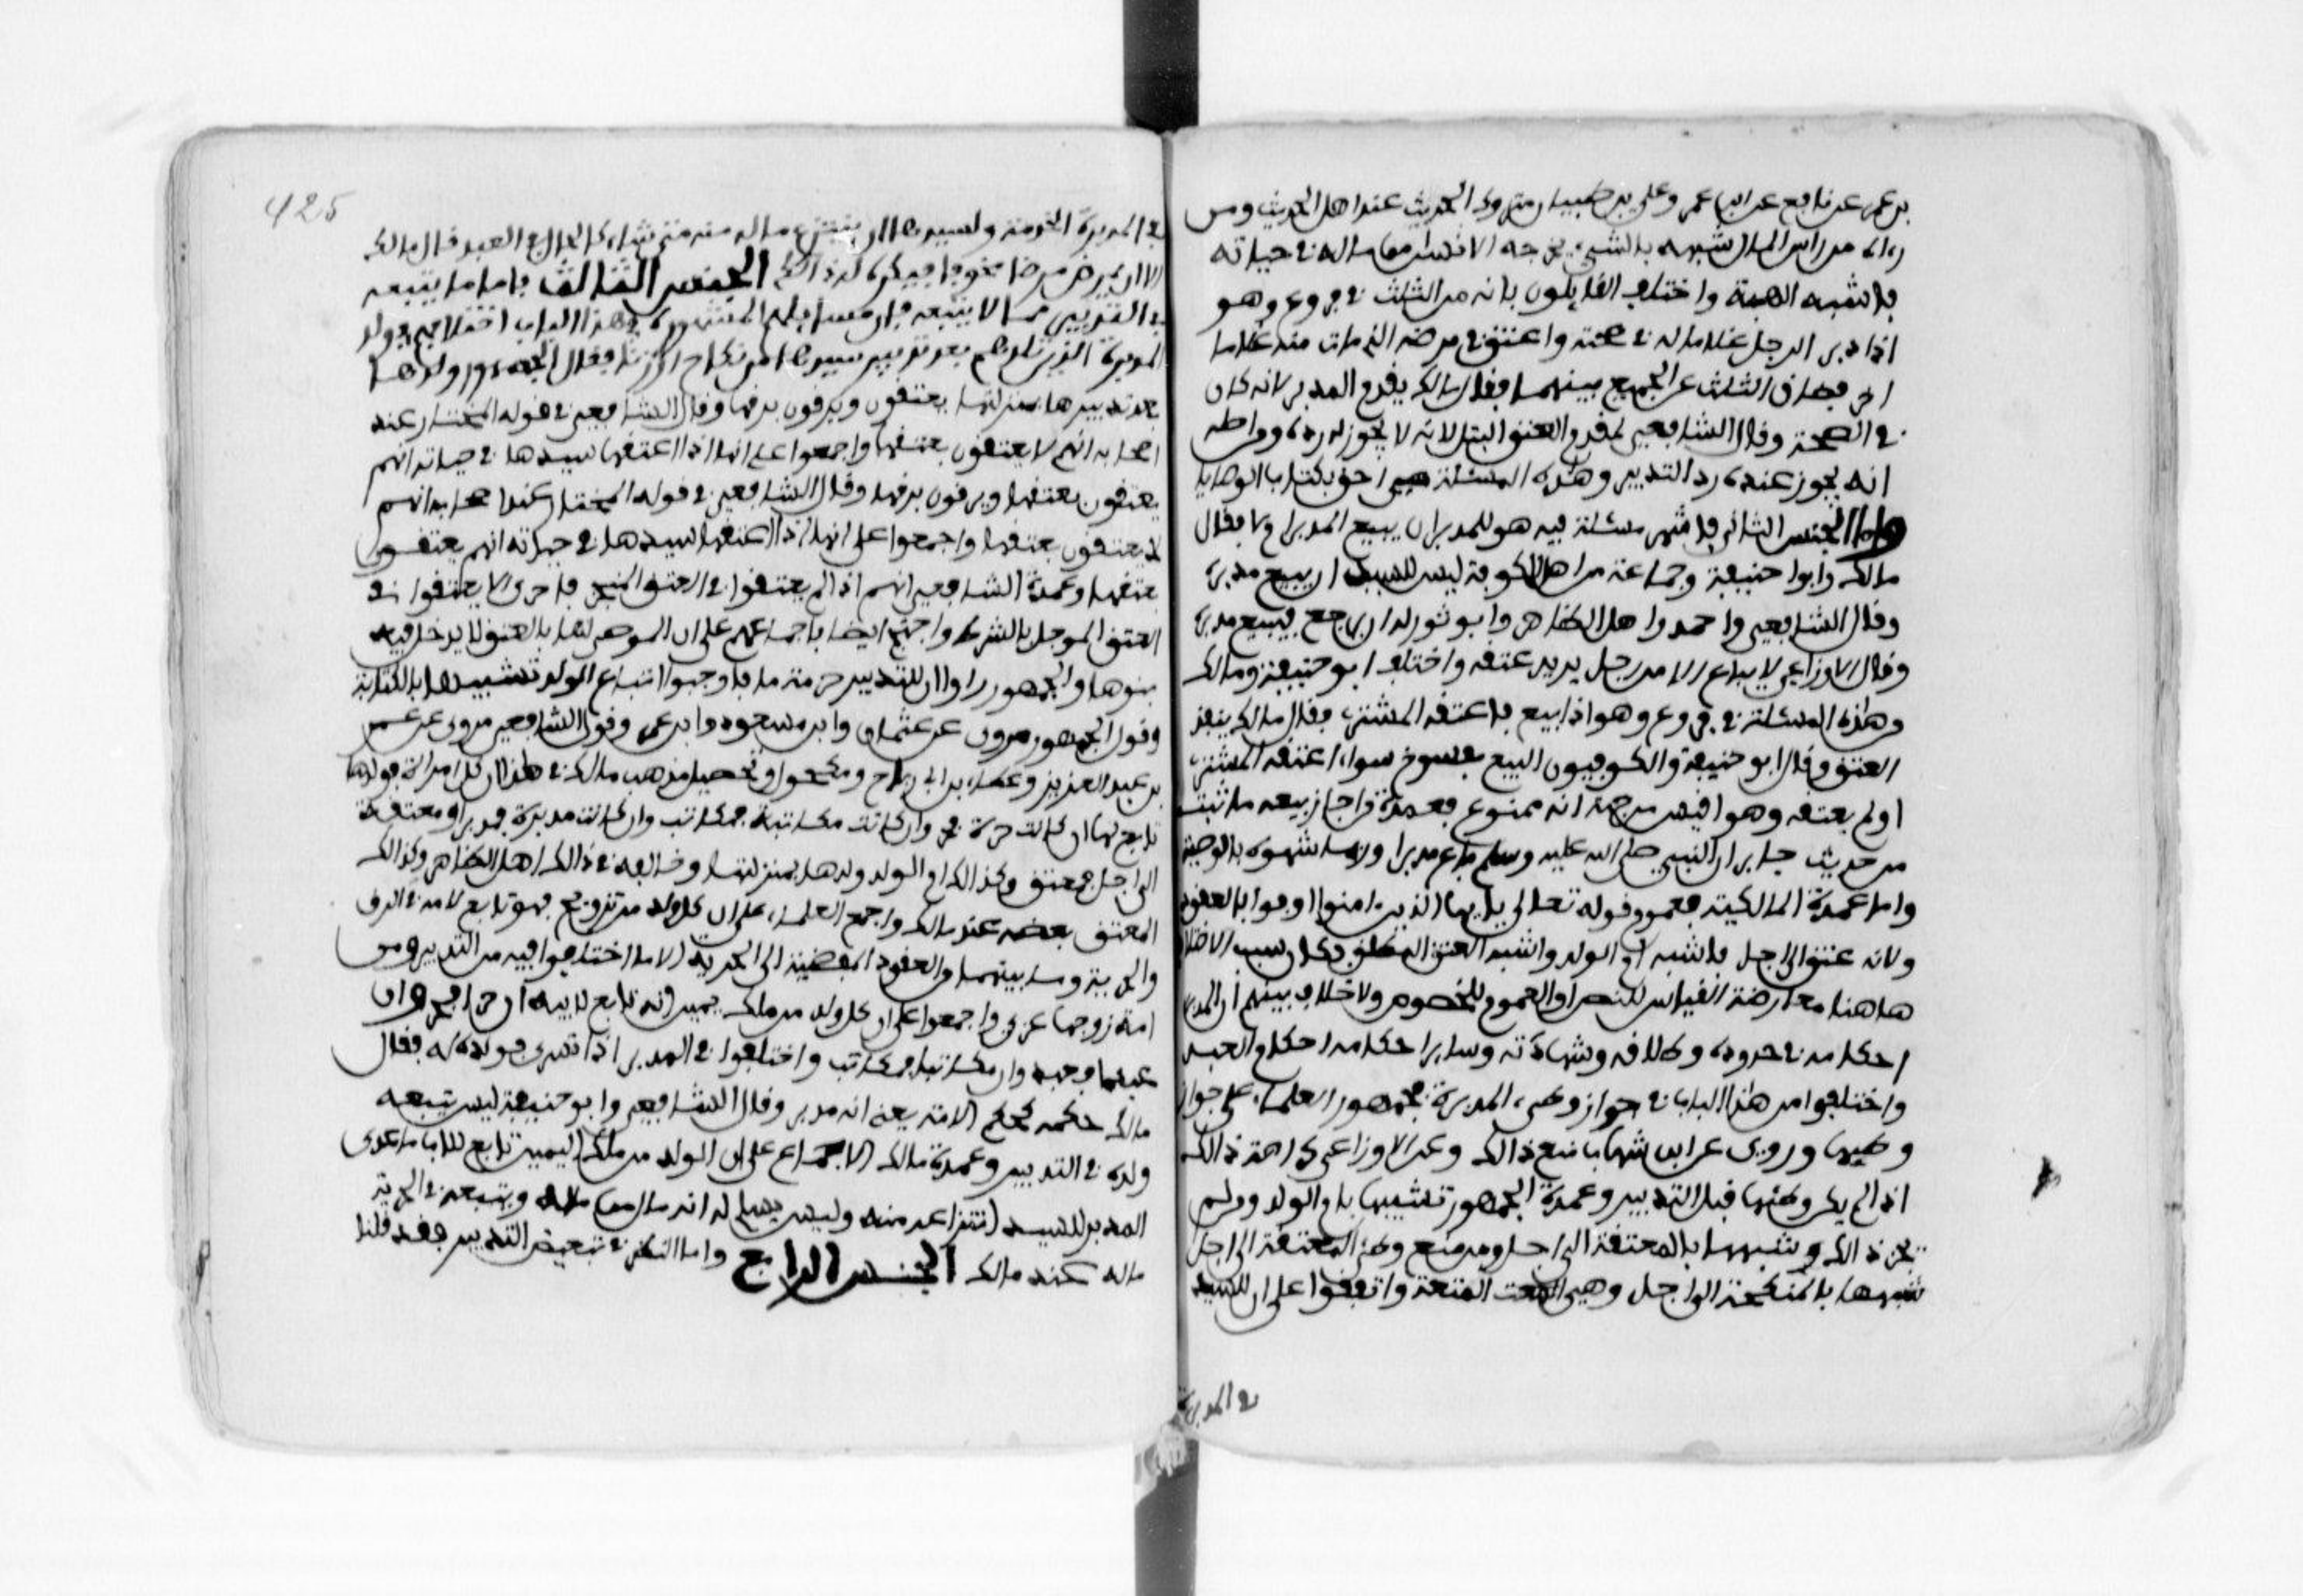 بن عمر عن نافع عن ابن عمر وعلي بن ظبيان متروك الحديث عند اهل الحديث ومن
رءاه من راس المال شبهه بالشيء يخرجه الانسان من ماله في حياته
فاشبه الهبة واختلف القايلون بانه من الثلث في فروع وهو
اذا دبر الرجل غلاما له في صحته واعتق في مرضه الذي مات منه غلاما
اخر فضاق الثلث عن الجميع بينهما فقال مالك يقدم المدبر لانه كان
في الصحة وقال الشافعي يقدم العتق البتل لانه لا يجوز له رده ومن اصله
انه يجوز عنده رد التدبير وهذه المسئلة هي احق بكتاب الوصايا
واما الجنس الثاني فاشهر مسئلة فيه هو للمدبر ان يبيع المدبر ام لا فقال
مالك وابوا حنيفة وجماعة من اهل الكوفة ليس للسيد ان يبيع مدبره
وقال الشافعي واحمد واهل الظاهر وابو ثور له ان يرجع فيبيع مدبره
وقال الاوزاعي لا يباع الا من رجل يريد عتقه واختلف ابو حنيفة ومالك
وهذه المسئلة في فروع وهو اذا بيع فاعتقه المشتري فقال مالك ينفذ
العتق وقال ابو حنيفة والكوفيون البيع مفسوخ سواء اعتقه المشتري
او لم يعتقه وهو اقيس من جهة انه ممنوع فعمدة من اجاز بيعه ما ثبت
من حديث جابر ان النبي صلى الله عليه وسلم باع مدبرا وربما شبهوه بالوصية
واما عمدة المالكية فعموم قوله تعالى يا ايها الذين ءامنوا اوفوا بالعقود
ولانه عتق الى اجل فاشبه ام الولد واشبه العتق المطلق فكان سبب الاختلاف
هاهنا معارضة القياس للنص او العموم للخصوص ولا خلاف بينهم ان المدبر
احكامه في حدوده وطلاقه وشهادته وساير احكامه احكام العبيد
واختلفوا من هذا الباب في جواز وطىء المدبرة فجمهور العلماء على جواز
وطيها وروي عن ابن شهاب منع ذالك وعن الاوزاعي كراهة ذالك
اذا لم يكن وطئها قبل التدبير وعمدة الجمهور تشبيهها بام الولد ومن لم
يجز ذالك شبهها بالمعتقة الى اجل ومن منع وطىء المعتقة الى اجل
شبهها بالمنكحة الى اجل وهي المتعة واتفقوا على ان للسيد
في المدبرة
425
في المدبرة الخدمة ولسيدها ان ينتزع ماله منه متى شاء كالحال في العبد قال مالك
الا ان يمرض مرضا مخوفا فيكره له ذالك الجنس الثالث فاما ما يتبعه
في التدبير مما لا يتبعه فان مسايلهم المشهورة في هذا الباب اختلافهم في ولد
المدبرة الذين تلدهم بعد تدبير سيدها من نكاح او زنا فقال الجمهور ولدها
بعد تدبيرها بمنزلتها يعتقون ويرقون برقها وقال الشافعي في قوله المختار عند
اصحابه انهم لا يعتقون بعتقها واجمعوا على انها اذا اعتقها سيدها في حياته انهم
يعتقون بعتقها ويرقون برقها وقال الشافعي في قوله المختار عند اصحابه انهم
لا يعتقون بعتقها واجمعوا على انها اذا اعتقها سيدها في حياته انهم يعتقون
بعتقها وعمدة الشافعي انهم اذا لم يعتقوا في العتق المنجز فاحرى ان لا يعتقوا في
العتق الموجل بالشرط واحتج ايضا باجماعهم على ان الموصى لها بالعتق لا يدخل فيه
بنوها والجمهور راوا ان للتدبير حرمة ما فاوجبوا اتباع الولد تشبيها بالكتابة
وقول الجمهور مروي عن عثمان وابن مسعود وابن عمر وقول الشافعي مروي عن عمر
بن عبد العزيز وعطاء بن ابي رباح ومكحول وتحصيل مذهب مالك في هذا ان كل امراة فولدها
تابع لها ان كانت حرة فحر وان كانت مكاتبة فمكاتب وان كانت مدبرة فمدبر او معتقة
الى اجل فمعتق وكذالك ام الولد ولدها بمنزلتها وخالفه في ذالك اهل الظاهر وكذالك
المعتق بعضه عند مالك واجمع العلماء على ان كل ولد من تزويج فهو تابع لامه في الرق
والحرية وما بينهما والعقود المفضية الى الحرية الا ما اختلفوا فيه من التدبير ومن
امة زوجها عربي واجمعوا على ان كل ولد من ملك يمين انه تابع لابيه ان حرا فحر وان
عبدا فعبد وان مكاتبا فمكاتب واختلفوا في المدبر اذا تسرى فولد له فقال
مالك حكمه حكم الامة يعني انه مدبر وقال الشافعي وابو حنيفة ليس يتبعه
ولده في التدبير وعمدة مالك الاجماع على ان الولد من ملك اليمين تابع للاب ما عدى
المدبر للسيد انتزاعه منه وليس يصلح له انه مال من ماله ويتبعه في الحرية
ماله عند مالك الجنس الرابع واما النظر في تبعيض التدبير فقد قلنا